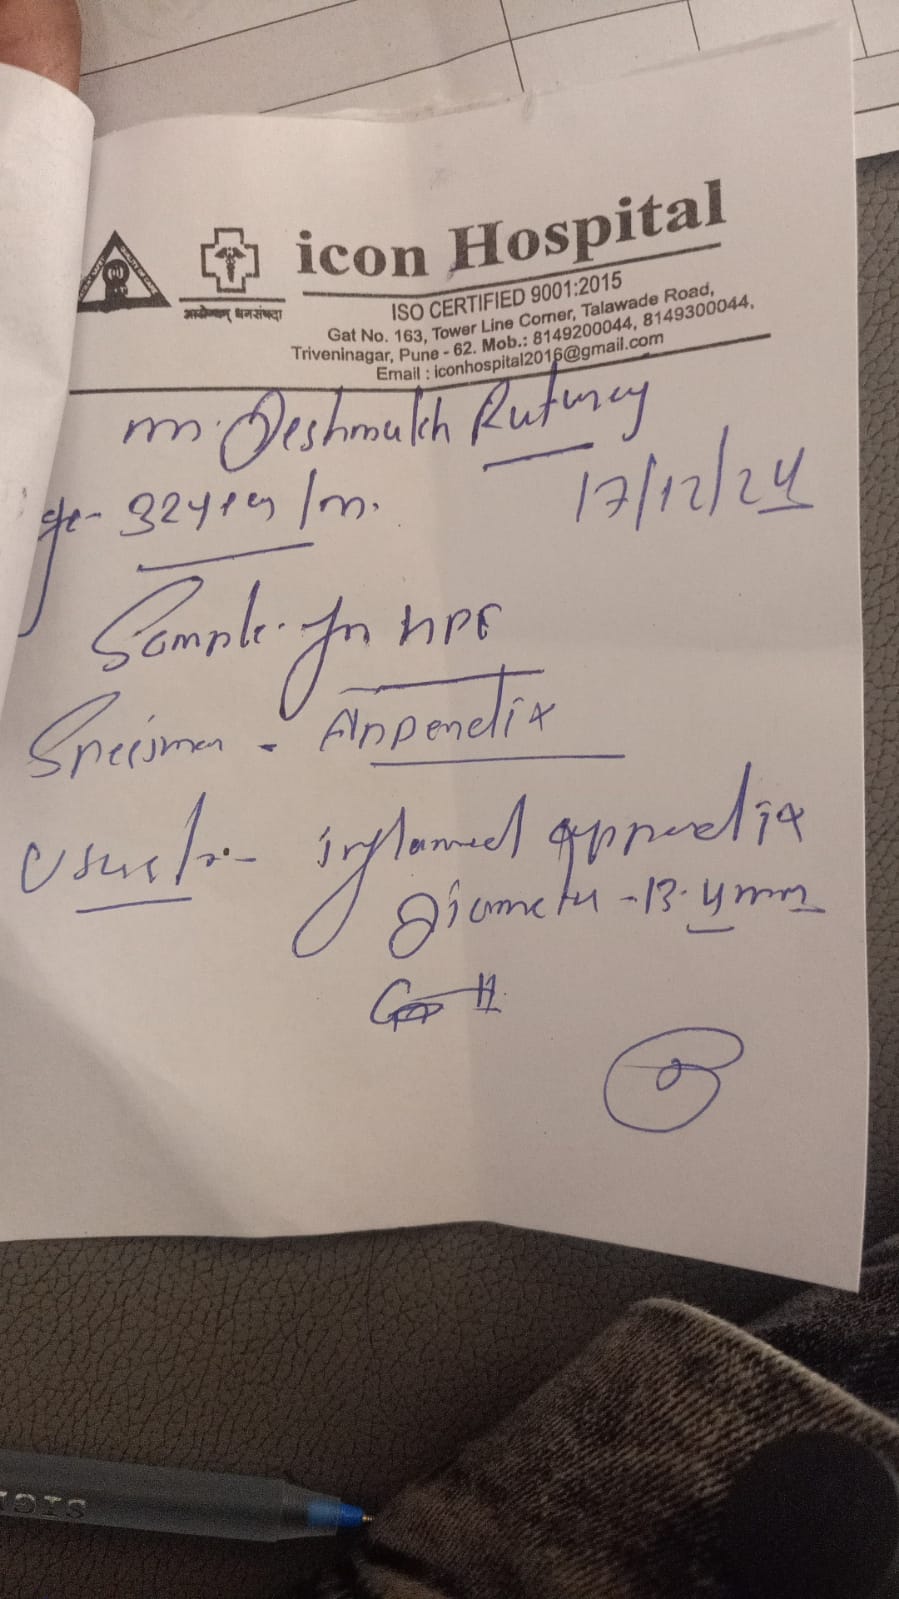 icon Hospital
आरोग्यम् धनसंपदा
ISO CERTIFIED 9001:2015
Gat No. 163, Tower Line Corner, Talawade Road,
Triveninagar, Pune - 62. Mob.: 8149200044, 8149300044,
Email : iconhospital2016@gmail.com
m. Deshmukh
17/12/24
ge - 32 yrs / m.
Sample for HPE
Specimen - Appendix
inflamed appendix
diameter - 13.4 mm